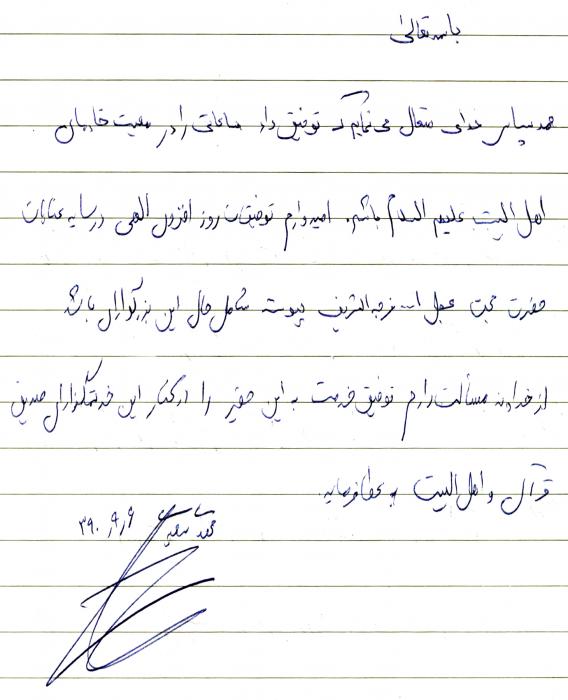 باسمه تعالی
حمد و سپاس خدای متعال می نمایم که توفیق داد ساعاتی را در معیت خادمان
اهل البیت علیهم السلام باشم. امیدوارم توفیقات روز افزون الهی در سایه عنایات
حضرت حجت عجل الله فرجه الشریف پیوسته شامل حال این بزرگواران باشد
از خداوند مسألت دارم توفیق خدمت به این حقیر را در کنار این خدمتگزاران صدیق
قرآن و اهل البیت عطا فرماید.
محمد سعید